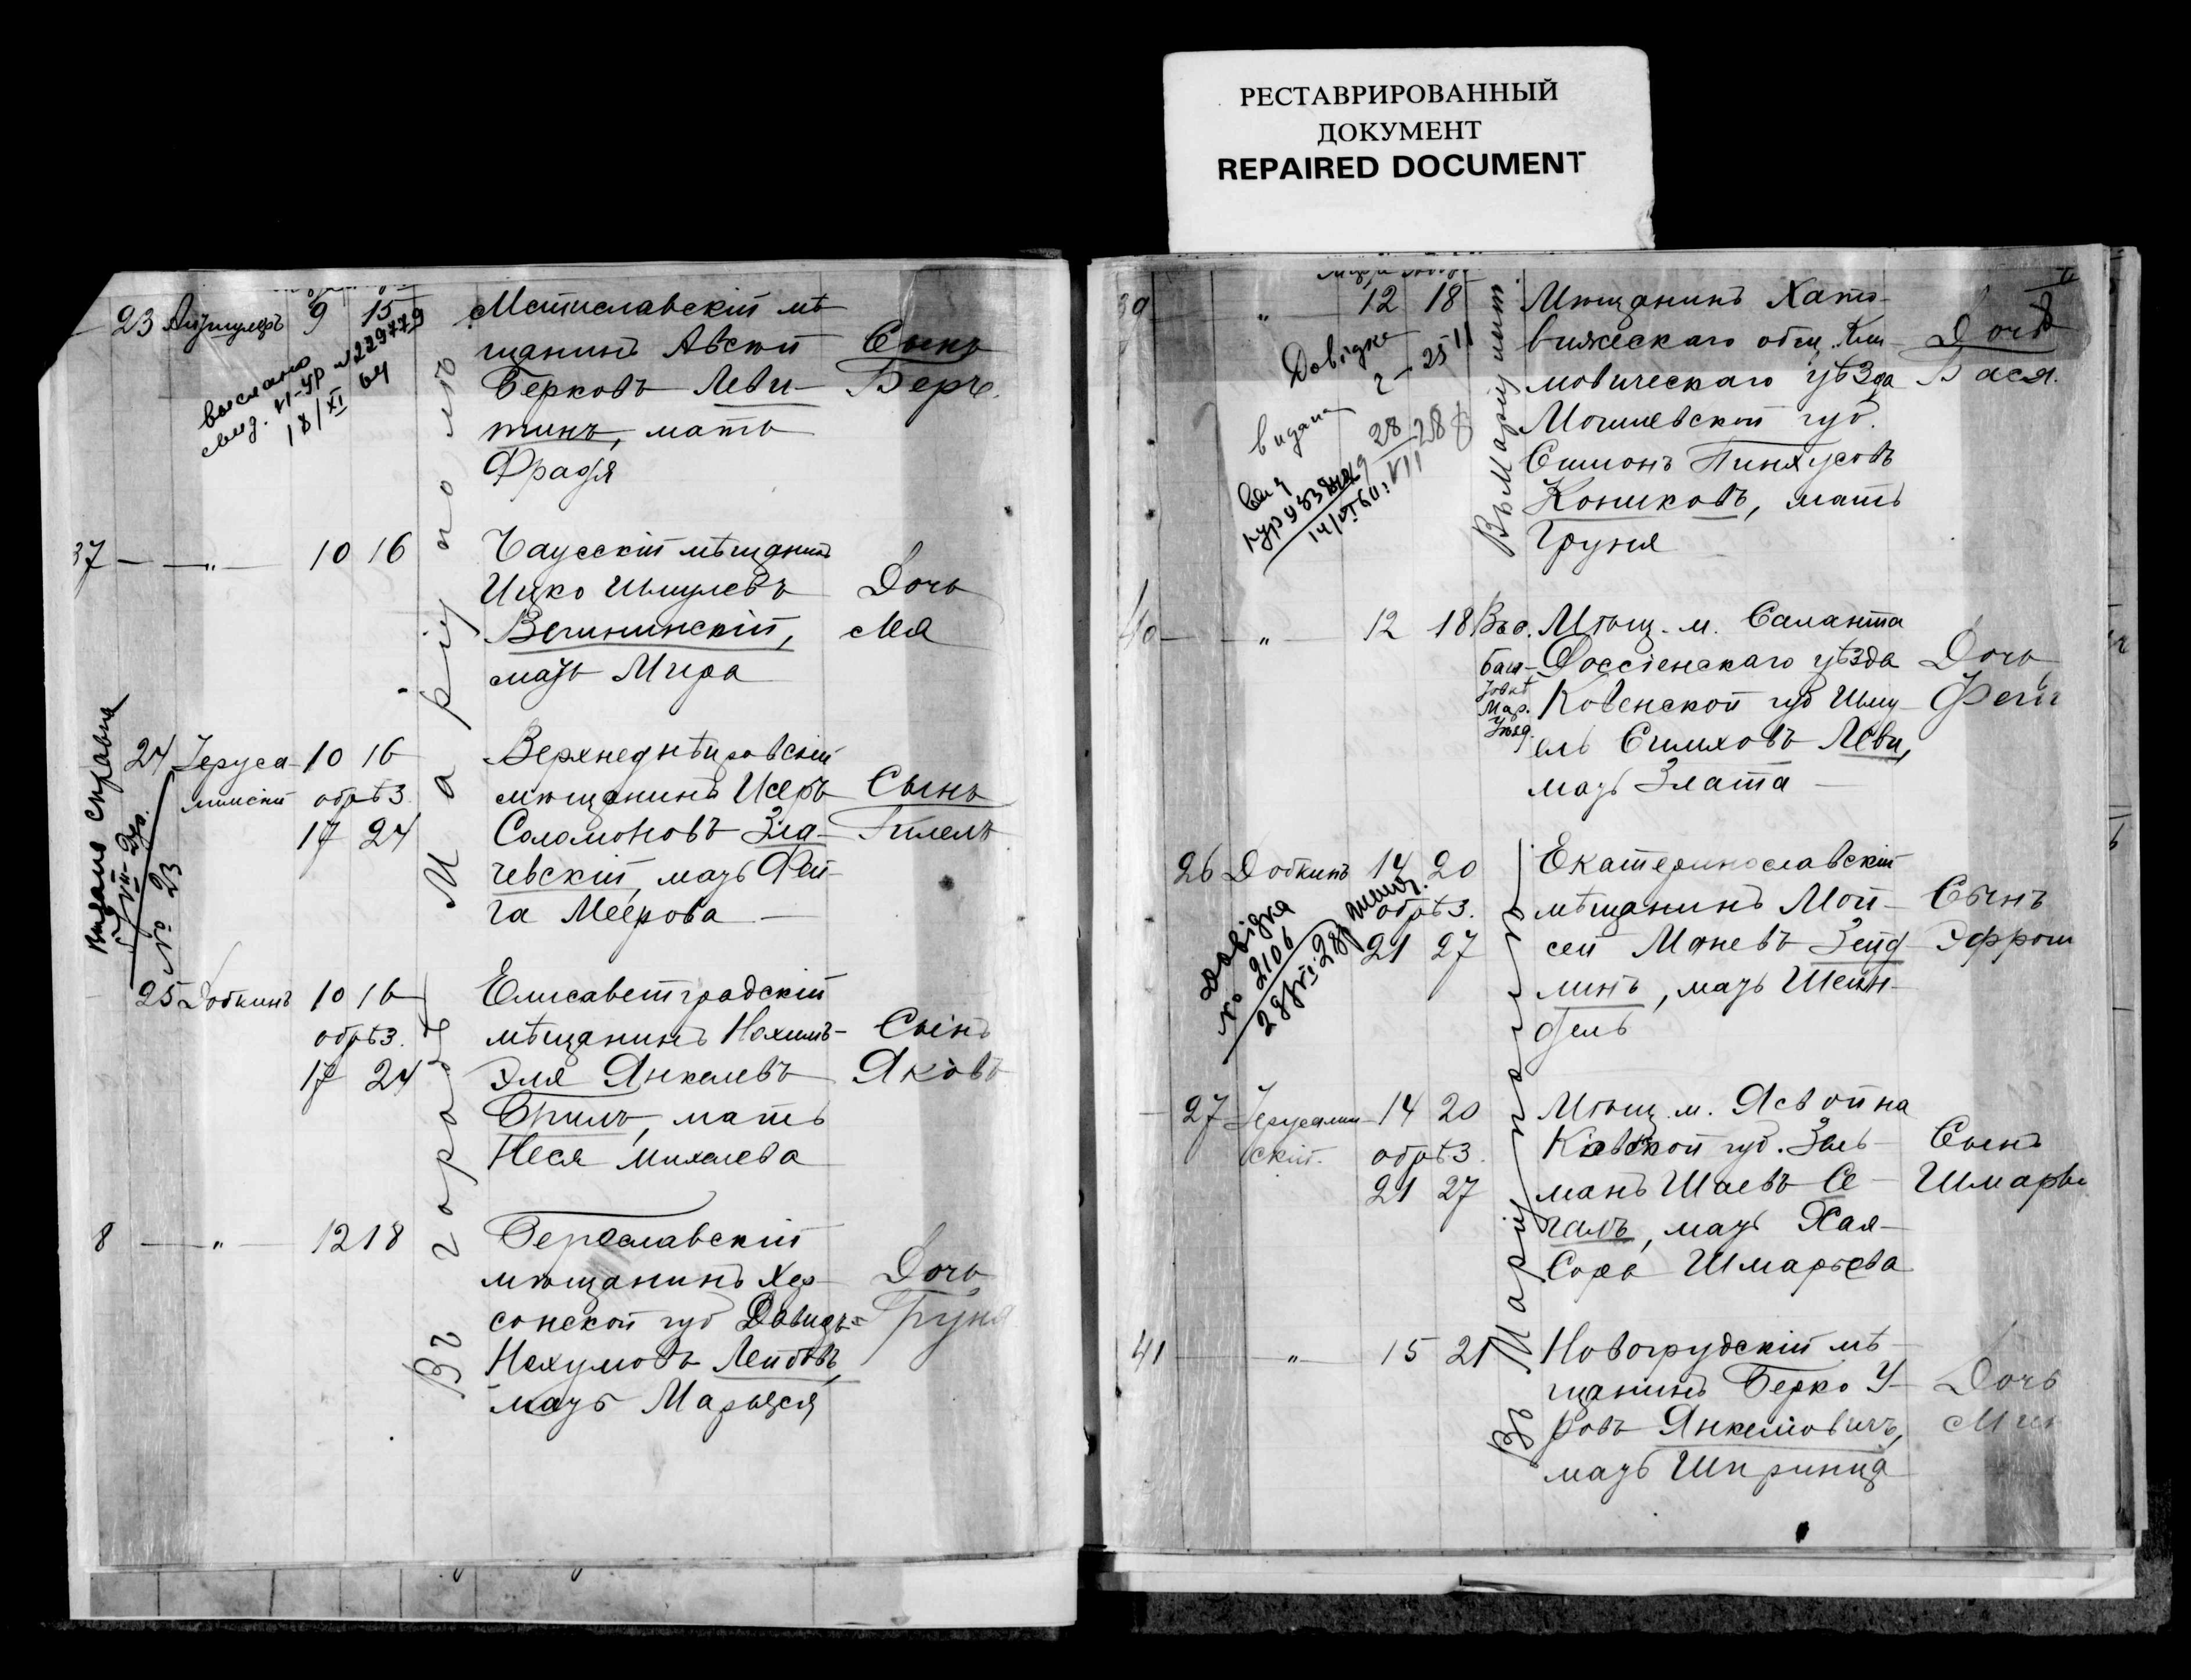 РЕСТАВРИРОВАННЫЙ
ДОКУМЕНТ
REPAIRED DOCUMENT
23 9 15
Мстиславскій мѣ-
щанинъ Авсѣй
Берковъ Леви-
тинъ, мать
Фрадя
Сынъ
Беръ.
выслано
свид. II-УР №229779
18/XI 64
37 — „ — 10 16
Чаусскій мѣщанинъ
Ицко Шмулевъ
мать Мира
Дочь
Мея
24 Іеруса-
лимскій
10 16
обрѣз.
17 24
Верхнеднѣпровскій
мѣщанинъ Исеръ
Соломоновъ Зла-
чевскій, мать Фей-
га Меерова
Сынъ
Гилель
№ 23
25 Добкинъ 10 16
обрѣз.
17 24
Елисаветградскій
мѣщанинъ Нохимъ-
Эля Янкелевъ
Бриль, мать
Неся Михелева
Сынъ
Яковъ
8 — „ — 12 18
Бериславскій
мѣщанинъ Хер-
сонской губ Давидъ-
Нахумовъ Лейбовъ,
мать Марьяся
Дочь
Груня
Въ городѣ Маріуполѣ
39 „ 12 18
Мѣщанинъ Хато-
вижскаго общ. Кли-
мовическаго уѣзда
Могилевской губ.
Симонъ Пинхусовъ
Кониковъ, мать
Груня
Дочь
Бася.
Довідка
видана
28 28
VII
40 — „ — 12 18
Мѣщ. м. Саланта
Россіенскаго уѣзда
Ковенской губ Шму-
ель Симховъ Леви,
мать Злата
Дочь
26 Добкинъ 14 20
обрѣз.
21 27
Екатеринославскій
мѣщанинъ Мой-
сей Маневъ Зейд-
линъ, мать Шейн-
дель
Сынъ
Эфроим
Довідка
№ 2106
27 Іерусалим-
скій.
14 20
обрѣз.
21 27
Мѣщ. м. Ясвойна
Ковской губ. Зал-
манъ Шаевъ Се-
галъ, мать Хая-
Сора Шмарьева
Сынъ
Шмарья
41 „ 15 21
Новогрудскій мѣ-
щанинъ Берко У-
ровъ Янкелевичъ,
мать Шпринца
Дочь
Въ Маріуполѣ